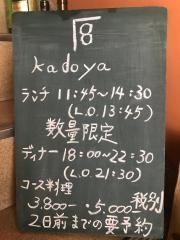 8
kadoya
ランチ 11:45〜14:30
(L.O.13:45)
数量限定
ディナー 18:00〜22:30
(L.O.21:30)
コース料理 税別
3.800- ・5.000-
2日前までの要予約